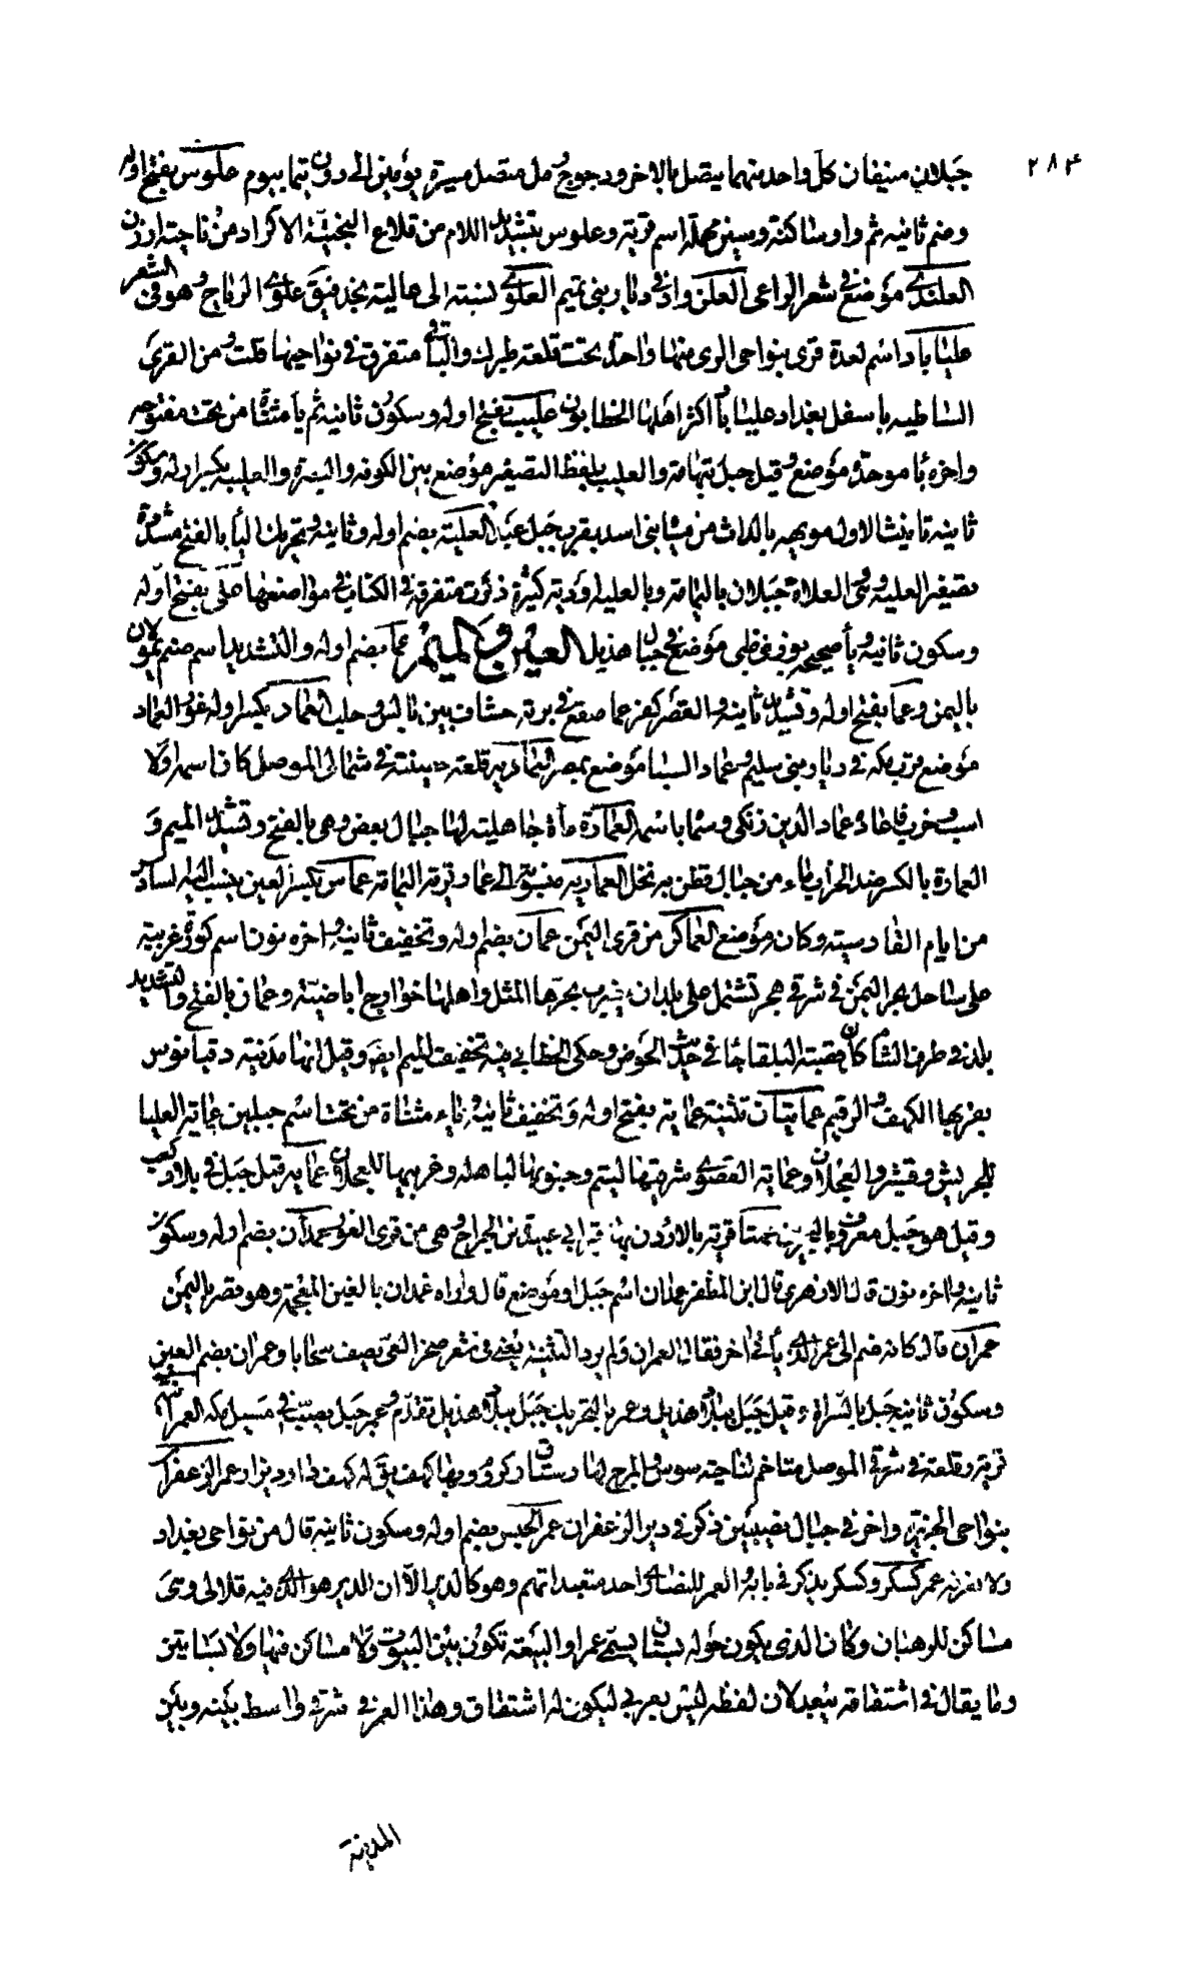 ٢٨٤
جبلان منيفان كل واحد منهما يتصل بالاخر ودجوج رمل متصل مسيرة يومين الى دون تيما بيوم علوس بفتح اوله
وضم ثانيه ثم واو ساكنة وسين مهملة اسم قرية وعلوس بتشديد اللام من قلاع البختية الاكراد من ناحية ارزن
العلندى موضع في شعر الراعى العلن واد في ديار بني تميم العلوى نسبة الى عالية نجد علوى الزجاج وهو في الشعر
علياباد اسم لعدة قرى بنواحى الرى منها واحدة تحت قلعة طبرك والباقي متفرق في نواحيها قلت ومن القرى
الشاطيه باسفل بغداد علياباد اكثر اهلها الخطابون عليب بفتح اوله وسكون ثانيه ثم يا مثناة من تحت مفتوحه
واخره با موحدة موضع وقيل جبل بتهامة والعليب بلفظ التصغير موضع بين الكوفه والبصرة والعلبيه بكسر اوله وسكون
ثانيه تانيث الاول مويهه بالداث من مياه بنى اسد بقرب جبل عبد العلية بضم اوله وثانيه وتحريك اليا بالفتح مشددة
تصغير العليه وهى العلاة جبلان باليمامة وبالعلية اودية كثيرة ذكرت متفرقة في الكتاب في مواضعها على بفتح اوله
وسكون ثانيه ويا صحيحه بوزن ظبى موضع في جبال هذيل العين والميم عما بضم اوله والتشديد اسم صنم لخولان
باليمن وعما بفتح اوله وتشديد ثانيه والقصر كفر عما صقع في برية خساف بين بالس وحلب العماد بكسر اوله غور العماد
موضع قرب مكه في ديار بني سليم وعماد السبا موضع بمصر العمادية قلعة حصينة في شمالى الموصل كان اسمها اولا
اسب وخرب فاعاده عماد الدين زنكى وسما باسمه العمارة ماة جاهلية لها جبال بيض وهى بالفتح وتشديد الميم و
العمارة بالكسر ضد الخراب ماء من جبال قطن به نخل العمارية منسوبة الى عمار قرية باليمامة عماس بكسر العين ينسب اليه اسا
من ايام القادسية وكان موضع العماكر من قرى اليمن عمان بضم اوله وتخفيف ثانيه واخره نون اسم كورة غربية
على ساحل بحر اليمن في شرقى هجر تشتمل على بلدان يضرب بحرها المثل واهلها خوارج اباضية وعمان بالفتح والتشديد
بلد في طرف الشام كان قصبة البلقا جا في حديث الحوض وحكى الخطابي فيه تخفيف الميم ايضا وقيل انها مدينة دقيانوس
بقربها الكهف والرقيم عمايتان تثنية عماية بفتح اوله وتخفيف ثانيه وياء مثناة من تحت اسم جبلين عماية العليا
للحريش وقشير والعجلان وعماية القصوى شرقيها لبني وجنوبها لباهله وغربيها للعجلان عماية قيل جبل في بلاد كعب
وقيل هو جبل معروف بالبحرين عمتا قرية بالاردن بها قبر ابي عبيدة بن الجراح وهى من قرى الغور عمدان بضم اوله وسكون
ثانيه واخره نون قال الازهرى قال ابن المظفر عمدان اسم جبل او موضع قال واراه غمدان بالغين المعجمة وهو قصر باليمن
عمران قال كانه ضم الى عمر الذى ياتى اخر فقال العمران ولم يرد التثنية يعنى في شعر صخر الغى يصف سحابا وعمران بضم العين
وسكون ثانيه جبل بالسراة وقيل جبل ببلاد هذيل وعمر بالتحريك جبل ببلاد هذيل تقدم وعمر جبل يصب في مسيل مكه العمر
قرية وقلعة في شرقى الموصل متاخم لناحية سوس والمرج لها رستاق وكروم وبها كهف يقال له كهف داود يزار عمر الزعفران
بنواحى الجزيرة واخر في جبال نصيبين ذكر في دير الزعفران عمر الحبيس بضم اوله وسكون ثانيه قال من نواحى بغداد
ولا نعرفه عمر كسكر وكسكر يذكر في بابه والعمر للنصارى واحد متعبداتهم وهو كالدير الا ان الدير هو الذى فيه قلالى وهى
مساكن للرهبان وكان الذى يكون حوله بستان يسمى عمرا والبيعة تكون بين البيوت ولا مساكن فيها ولا بساتين
وما يقال في اشتقاقه بعيد لان لفظه ليس بعربي ليكون له اشتقاق وهذا العمر في شرقى واسط بينه وبين
المدينة